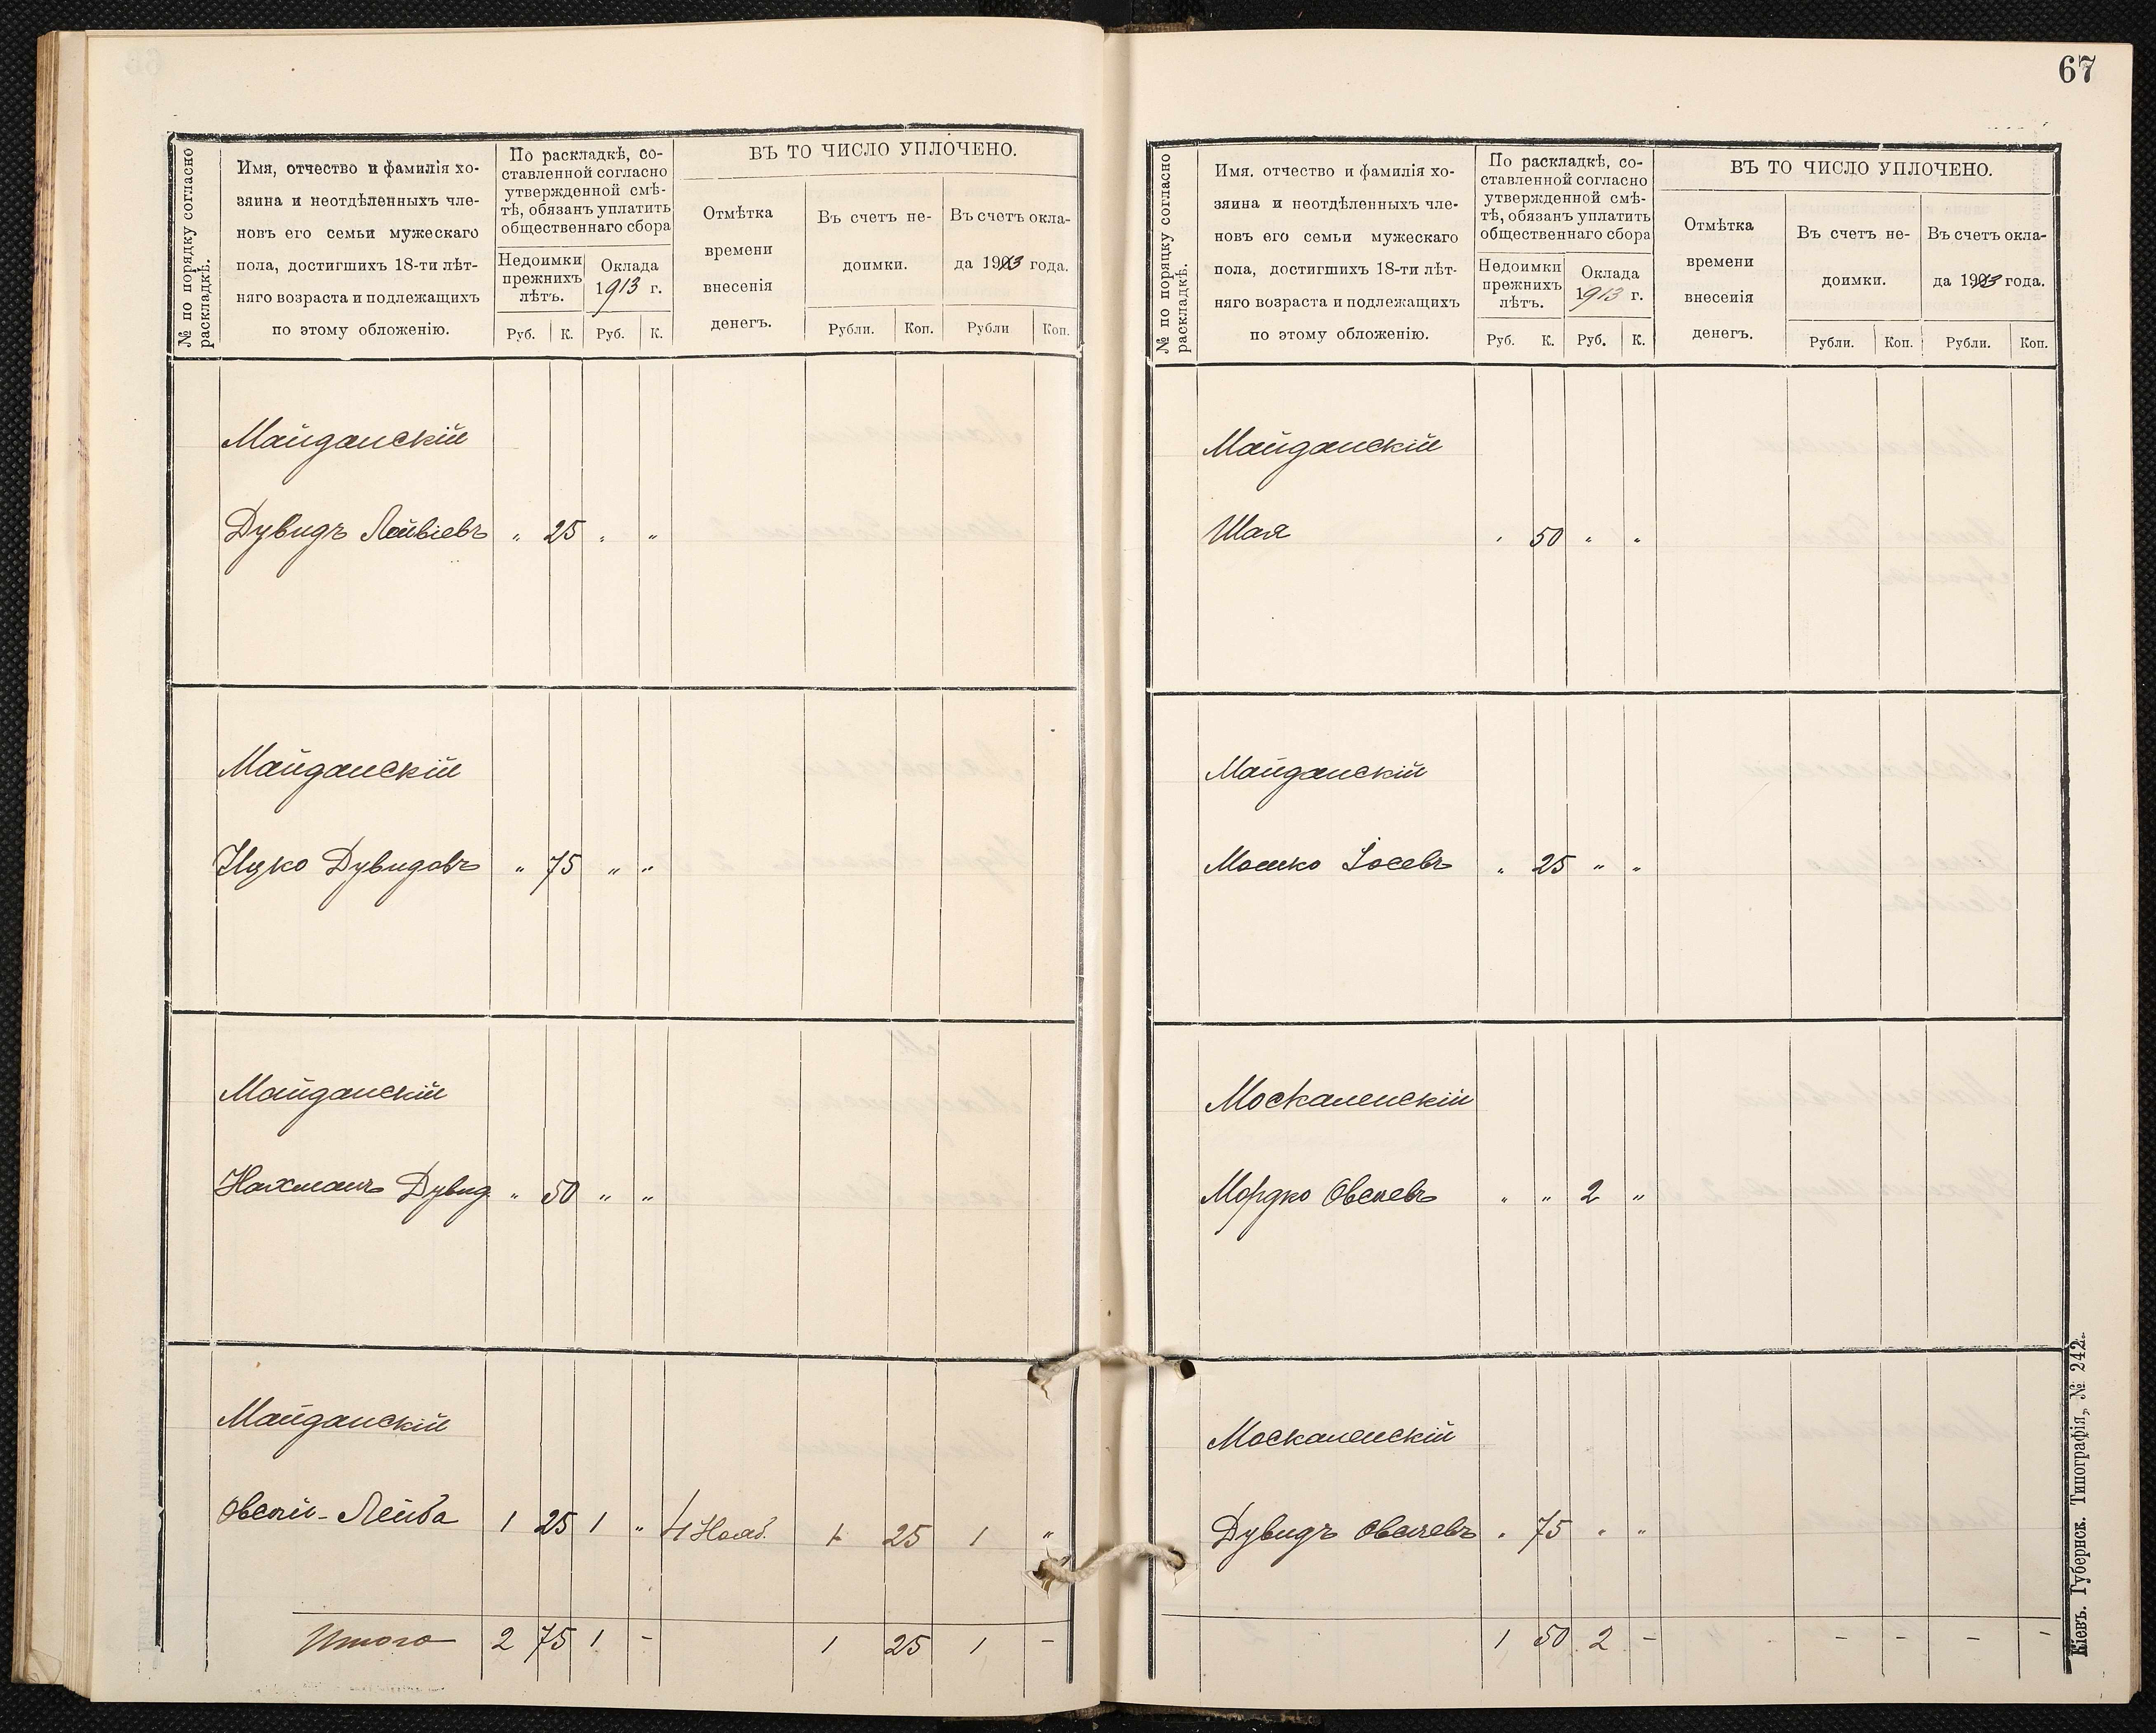 67
№ по порядку согласно
раскладкѣ.
Имя, отчество и фамилія хо-
зяина и неотдѣленныхъ чле-
новъ его семьи мужескаго
пола, достигшихъ 18-ти лѣт-
няго возраста и подлежащихъ
по этому обложенію.
По раскладкѣ, со-
ставленной согласно
утвержденной смѣ-
тѣ, обязанъ уплатить
общественнаго сбора
Недоимки
прежнихъ
лѣтъ.
Оклада
1913 г.
Руб. К. Руб. К.
ВЪ ТО ЧИСЛО УПЛОЧЕНО.
Отмѣтка
времени
внесенія
денегъ.
Въ счетъ не-
доимки.
Въ счетъ окла-
да 1913 года.
Рубли. Коп. Рубли Коп.
Майданскій
Дувидъ Лейвіевъ „ 25 „ „
Майданскій
Ицко Дувидовъ „ 75 „ „
Майданскій
Нахманъ Дувид „ 50 „ „
Майданскій
Овсій-Лейба 1 25 1 „ 4 Нояб. 1 25 1 „
Итого 2 75 1 - 1 25 1 -
№ по порядку согласно
раскладкѣ.
Имя. отчество и фамилія хо-
зяина и неотдѣленныхъ чле-
новъ его семьи мужескаго
пола, достигшихъ 18-ти лѣт-
няго возраста и подлежащихъ
по этому обложенію.
По раскладкѣ, со-
ставленной согласно
утвержденной смѣ-
тѣ, обязанъ уплатить
общественнаго сбора
Недоимки
прежнихъ
лѣтъ.
Оклада
1913 г.
Руб. К. Руб. К.
ВЪ ТО ЧИСЛО УПЛОЧЕНО.
Отмѣтка
времени
внесенія
денегъ.
Въ счетъ не-
доимки.
Въ счетъ окла-
да 1913 года.
Рубли. Коп. Рубли. Коп.
Майданскій
Шая „ 50 „ „
Майданскій
Мошко Іосевъ „ 25 „ „
Москаленскій
Мордко Овсеевъ „ „ 2 „
Москаленскій
Дувидъ Овсеевъ „ 75 „ „
1 50 2 - - - - -
Кіевъ. Губернск. Типографія, № 242.